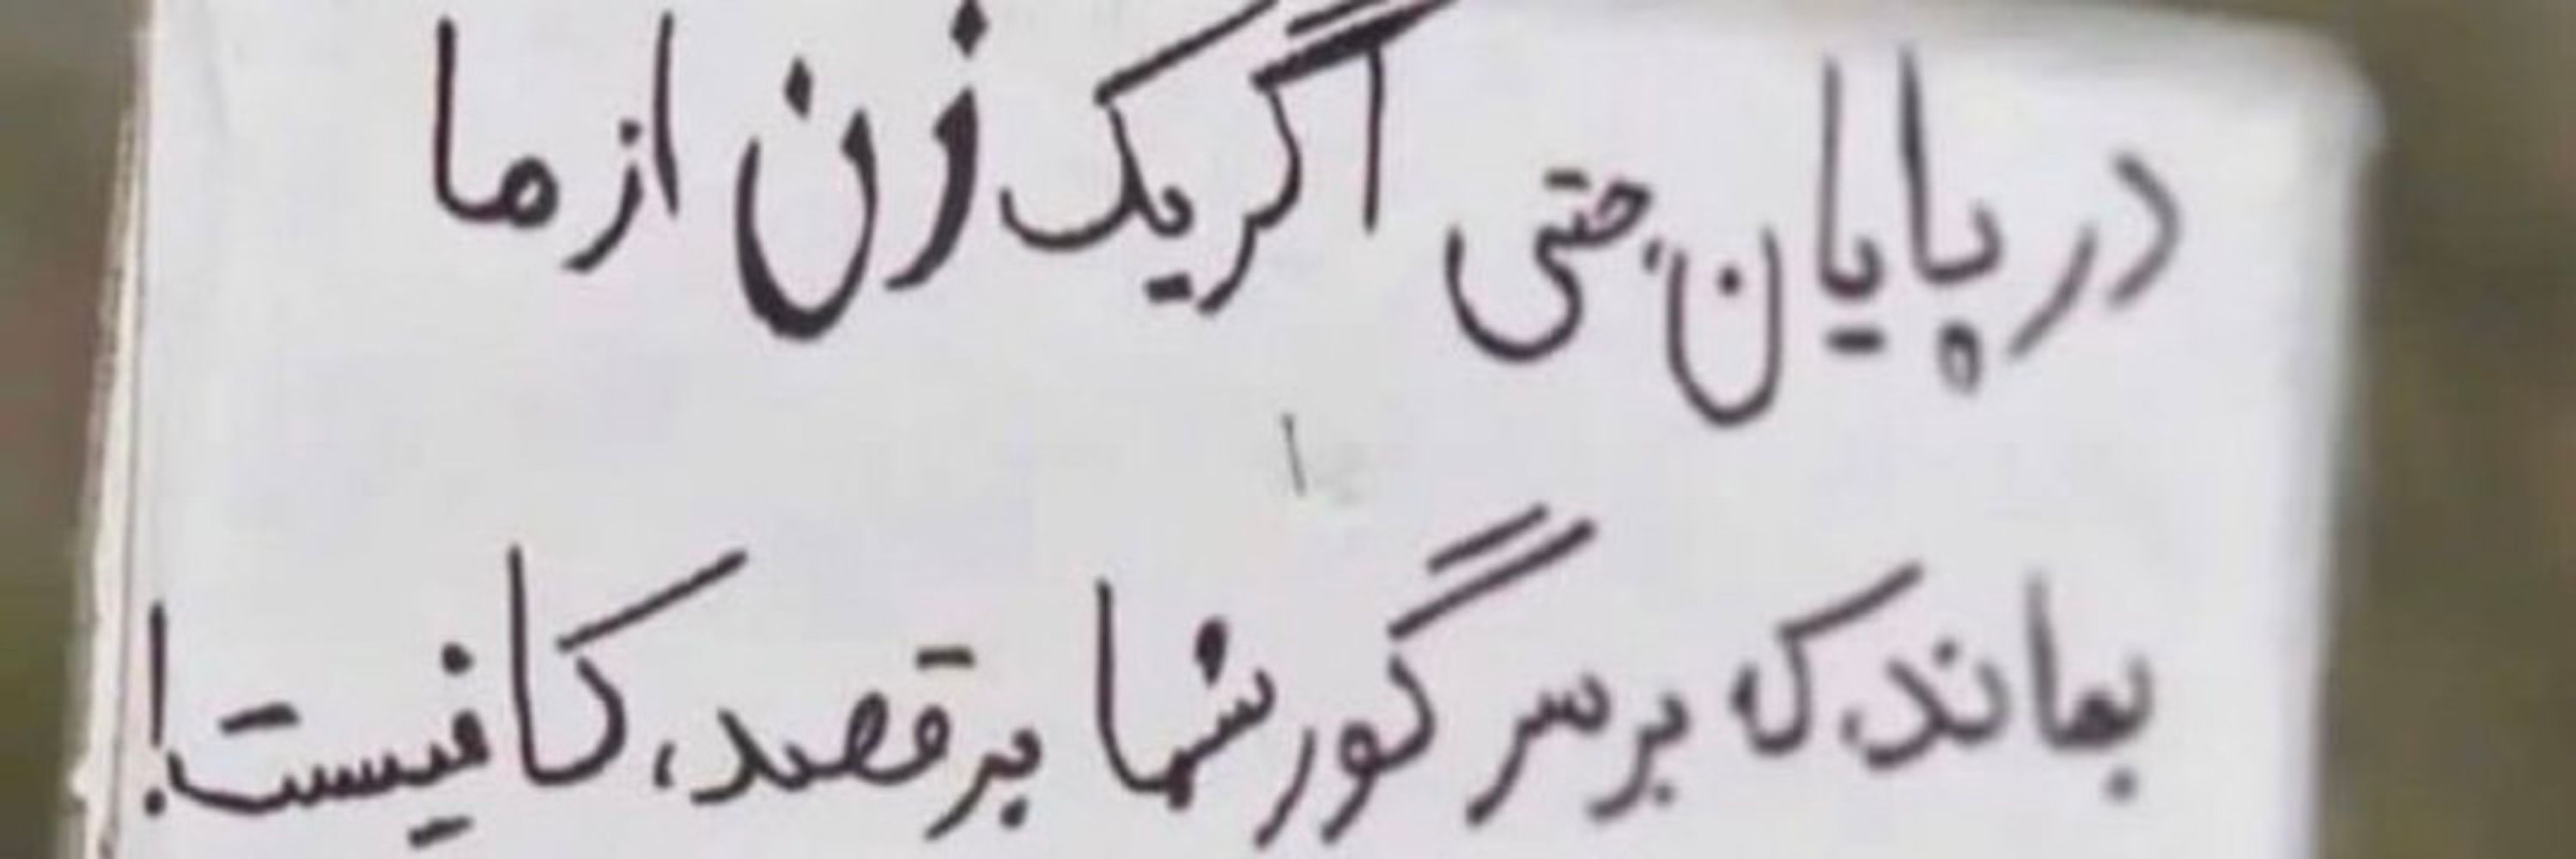 در پایان، حتی اگر یک زن از ما
بماند که بر سر گور شما برقصد، کافیست!